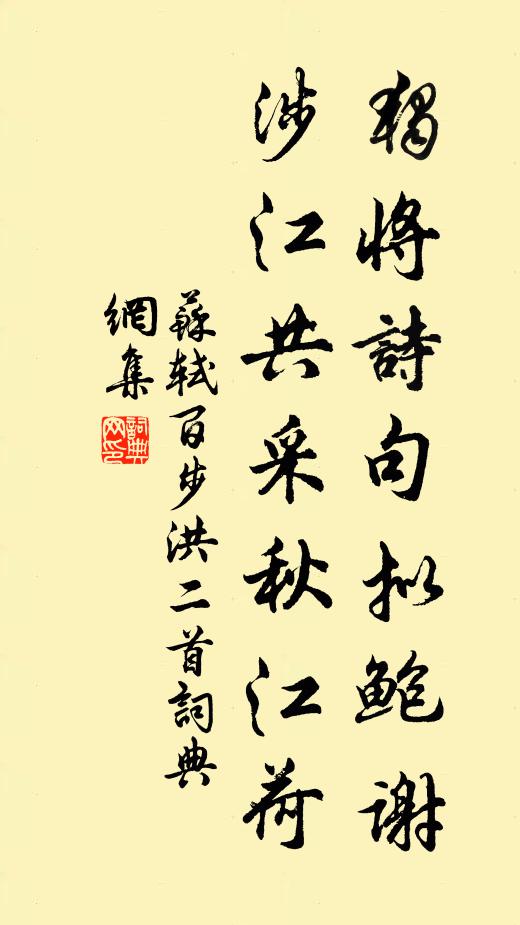 獨將詩句拟鲍谢
涉江共采秋江荷
蘇軾百步洪二首詞典
網集
詞典
网印